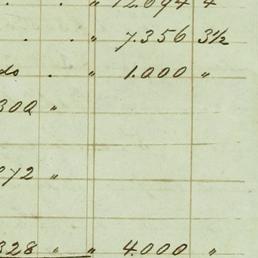 . . " 12.694 4
. . " 7.356 3½
do . " 1.000 "
300 "
872 "
328 " " 4.000 "